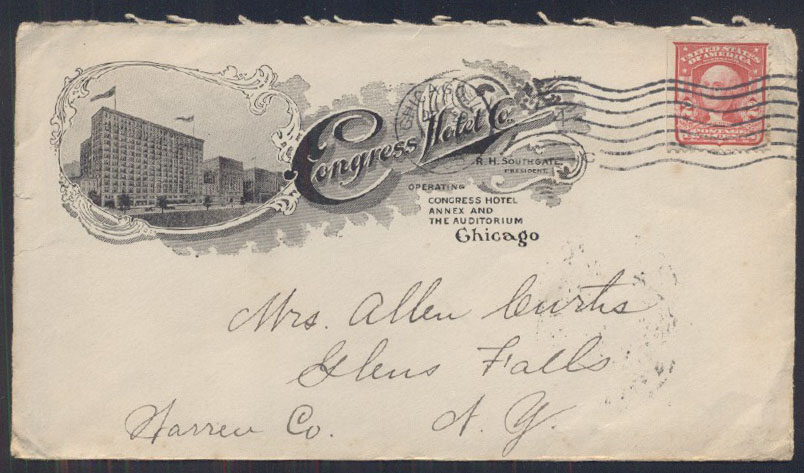 UNITED STATES
OF AMERICA
POSTAGE
CHICAGO
Congress Hotel Co.
R. H. SOUTHGATE
PRESIDENT.
OPERATING
CONGRESS HOTEL
ANNEX AND
THE AUDITORIUM
Chicago
Mrs. Allen Curtis
Glens Falls
Warren Co. N. Y.